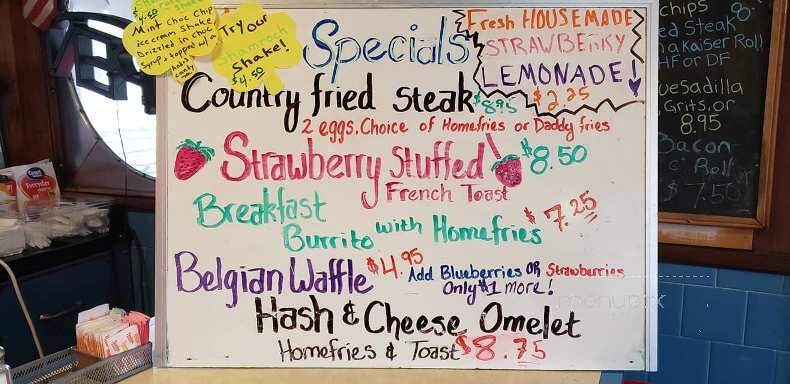 $4.50
Mint Choc Chip
ice cream Shake
Drizzled in Choc
Syrup & topped w/a
candy
Try our
Shamrock
Shake!
$4.50
Specials
Fresh HOUSEMADE
STRAWBERRY
LEMONADE!
$2.25
Country fried steak $8.95
2 eggs, Choice of Homefries or Daddy fries
Strawberry Stuffed $8.50
French Toast
Breakfast
Burrito with Homefries $7.25
Belgian Waffle $4.95
Add Blueberries OR Strawberries
Only $1 more!
Hash & Cheese Omelet
Homefries & Toast $8.75
chips 8.
ed Steak
n a Kaiser Roll
HF or DF
uesadilla
Grits, or
8.95
Bacon
Roll
$7.50
Great Value
Everyday